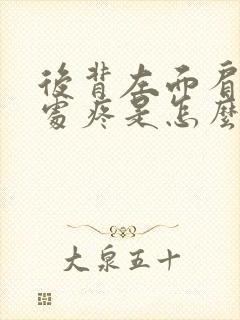 後背左而肩
處疼是怎麼
大泉五十